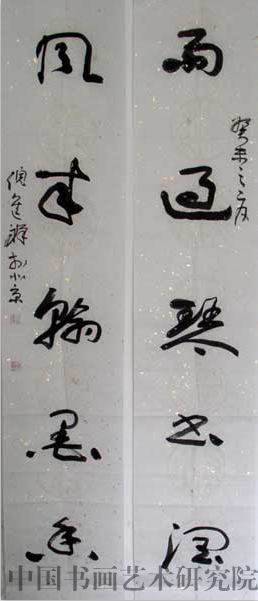 癸未之夏
雨過琴書潤
風來翰墨香
於北京
中国书画艺术研究院